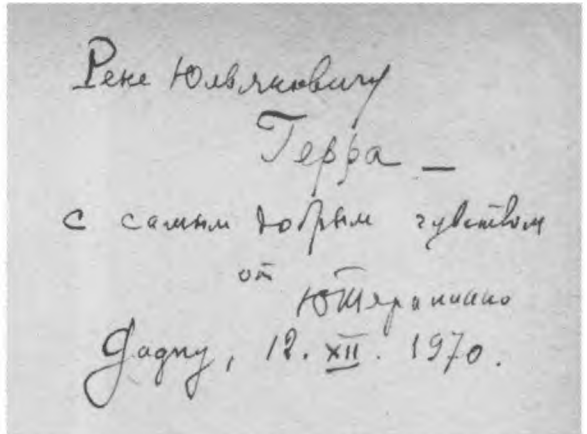 Рене Юльяновичу
Герра —
с самым добрым чувством
от
ЮТерапиано
Gagny, 12. XII. 1970.